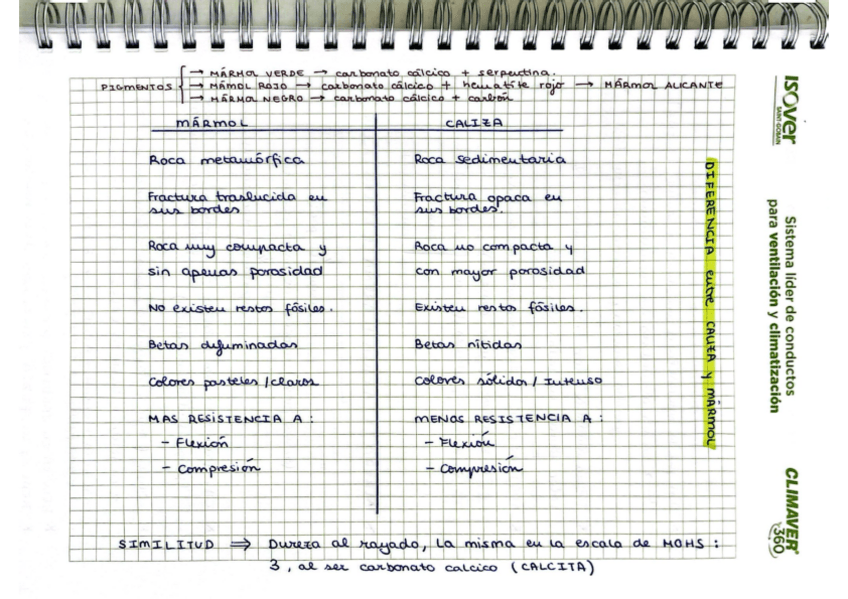 PIGMENTOS → MÁRMOL VERDE → carbonato cálcico + serpentina.
→ MÁMOL ROJO → carbonato cálcico + hematite rojo → MÁRMOL ALICANTE
→ MÁRMOL NEGRO → carbonato cálcico + carbón
MÁRMOL
CALIZA
Roca metamórfica
Roca sedimentaria
Fractura traslucida en
sus bordes
Fractura opaca en
sus bordes.
Roca muy compacta y
sin apenas porosidad
Roca no compacta y
con mayor porosidad
No existen restos fósiles.
Existen restos fósiles.
Betas difuminadas
Betas nítidas
Colores pasteles / claros
Colores sólidos / Intenso
MAS RESISTENCIA A :
- Flexión
- Compresión
MENOS RESISTENCIA A :
- Flexión
- Compresión
SIMILITUD ⇒ Dureza al rayado, la misma en la escala de MOHS :
3, al ser carbonato calcico (CALCITA)
DIFERENCIA entre CALIZA y MÁRMOL
isover
SAINT-GOBAIN
Sistema líder de conductos
para ventilación y climatización
CLIMAVER
360